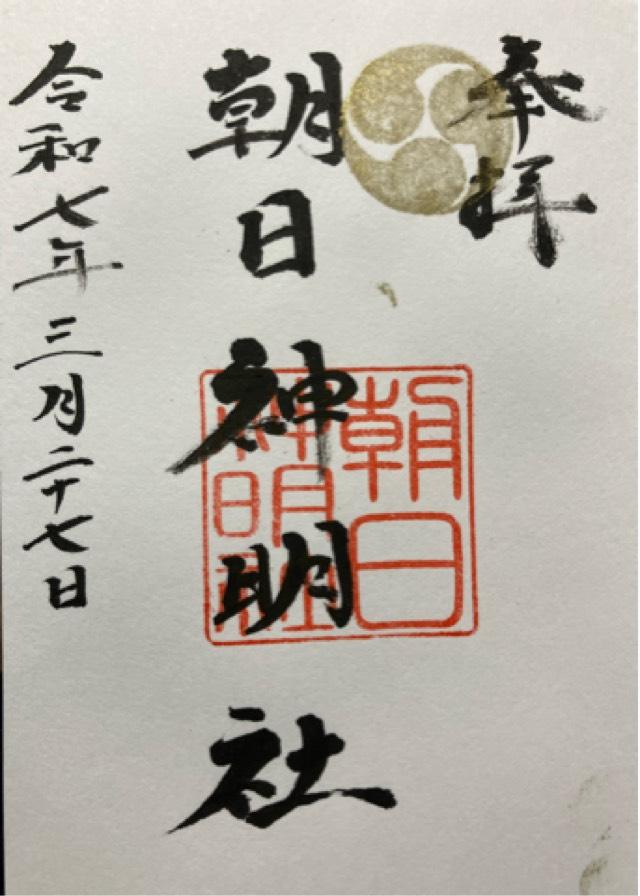 奉拝
朝日神明社
朝日
神明社
令和七年三月二十七日